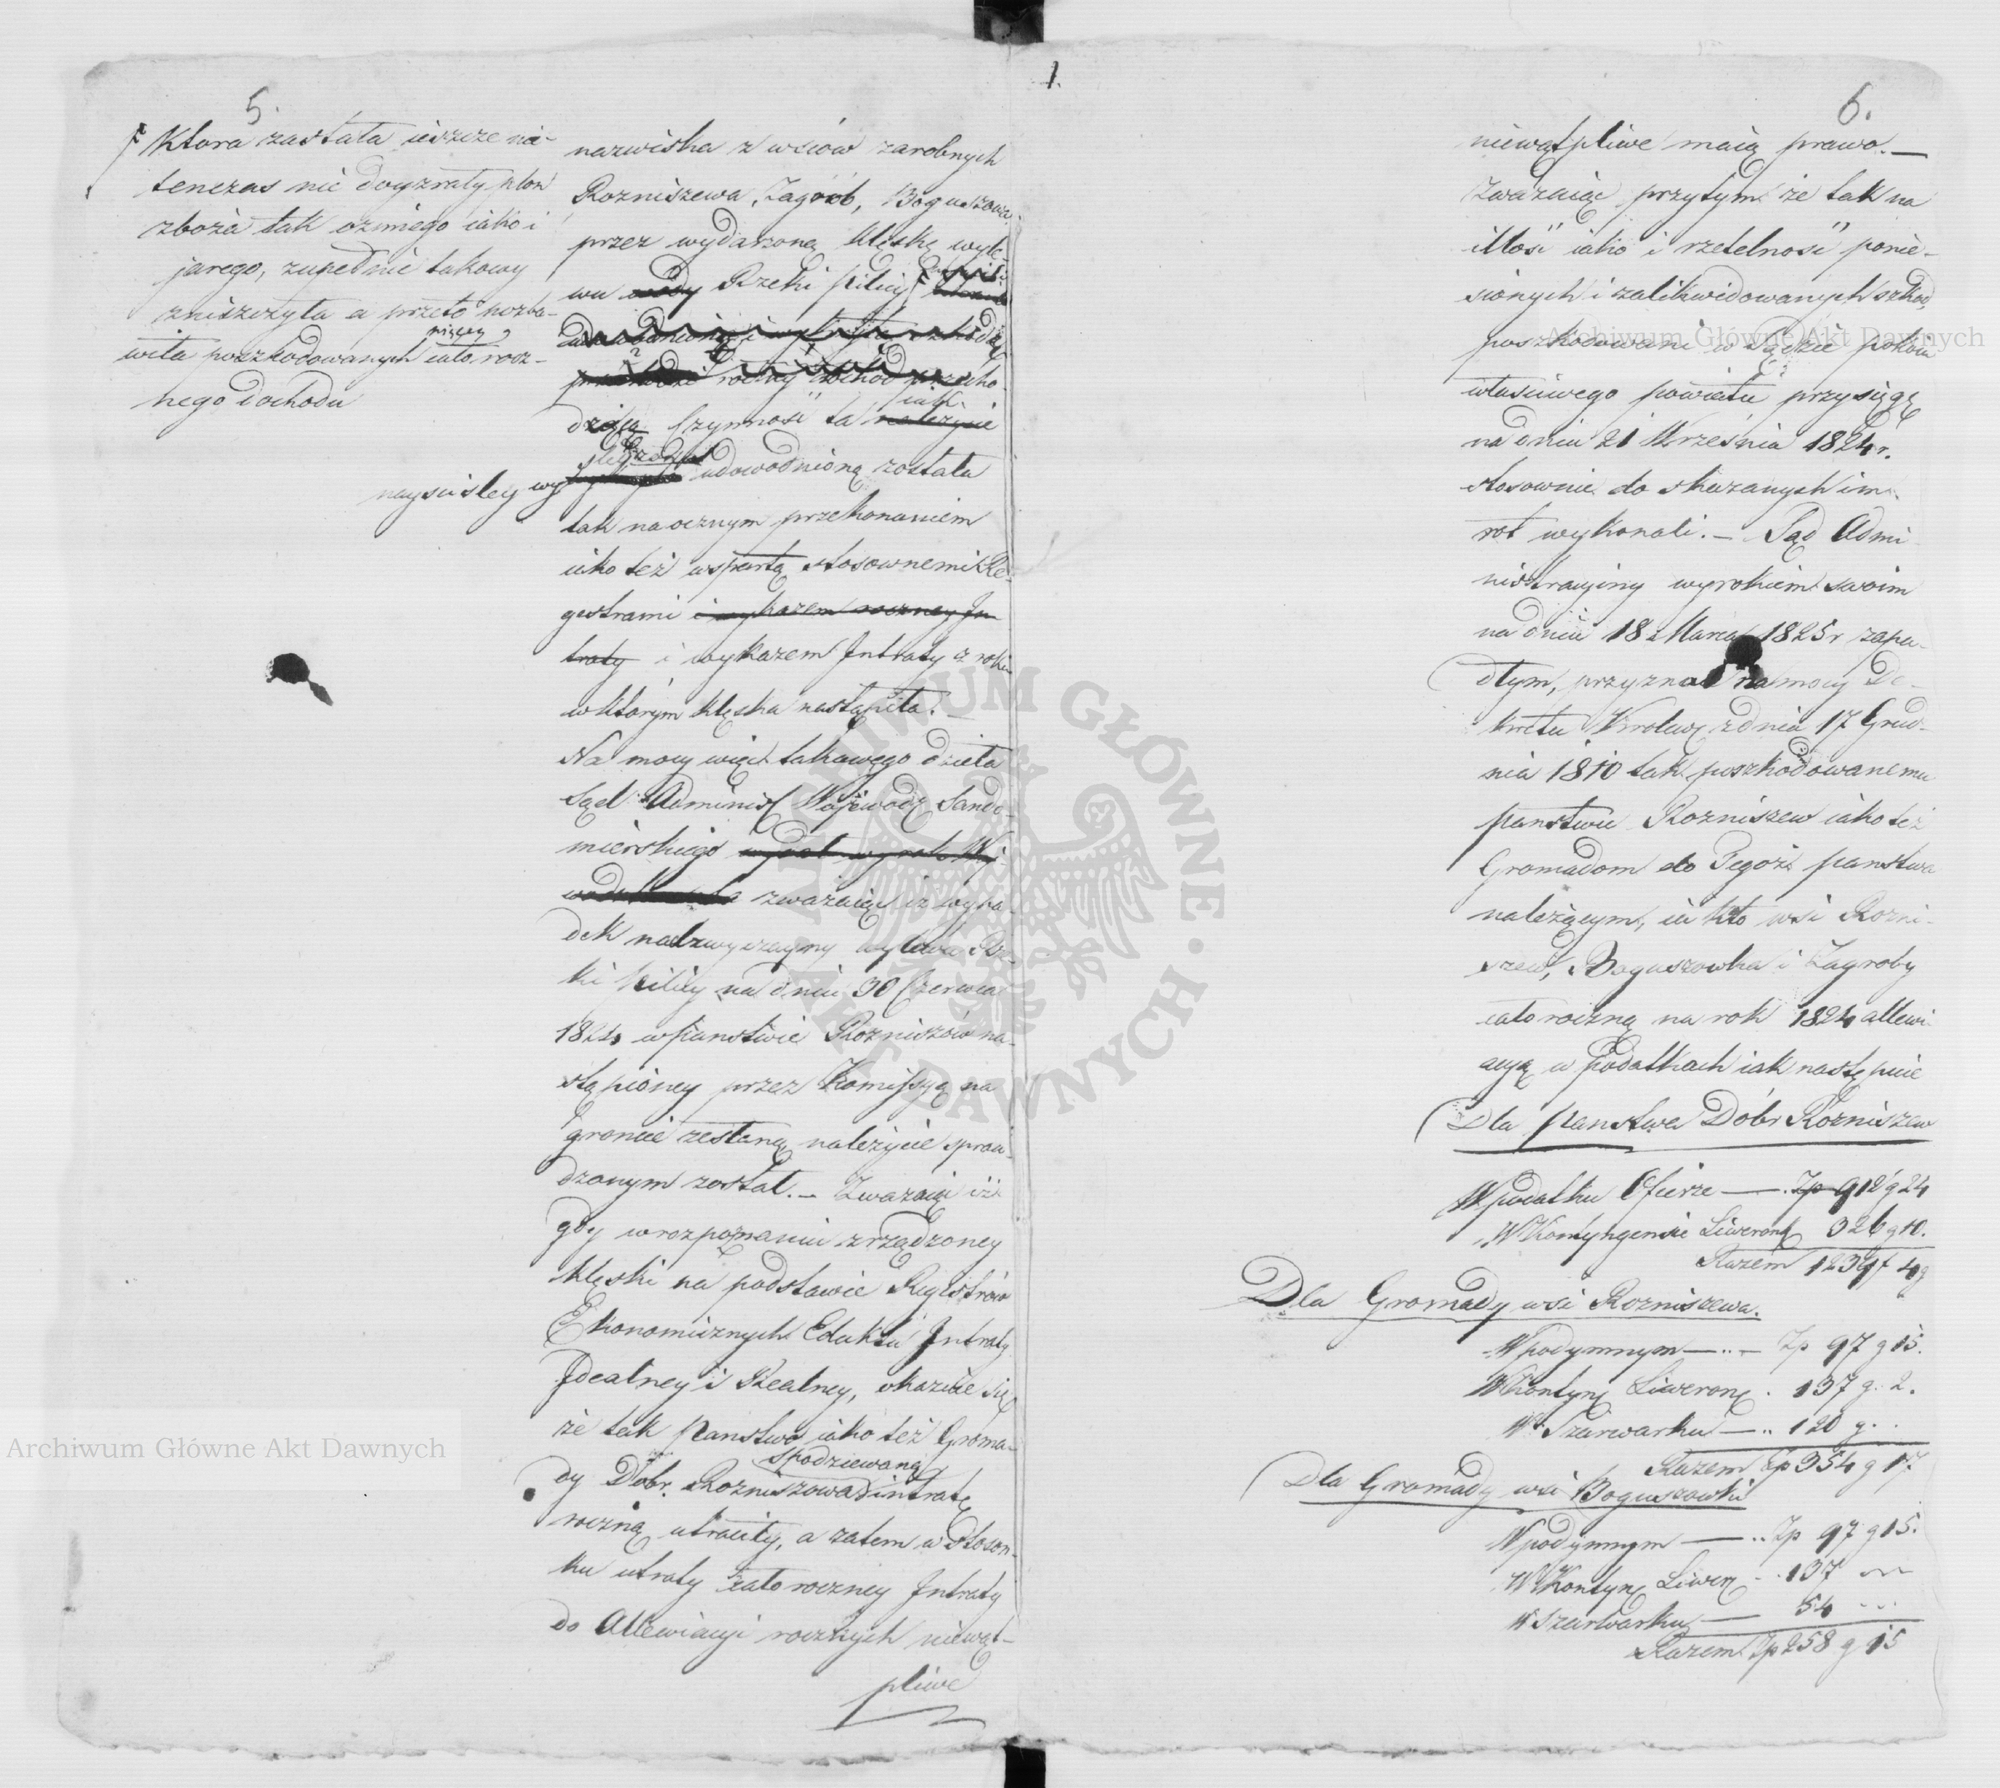 5.
Ktora zastała ieszcze na-
tenczas nie doyzrały plon
zboża tak ozimego iako i
jarego, zupełnie takowy
zniszczyła a przeto pozba-
wiła poszkodowanych cało rocz-
nego dochodu
nayściśley wy
nazwiska z wsiów zarobnych
Rozniszewa, Zagrób, Boguszowa
przez wydarzoną klęskę wyle-
wu wody Rzeki Pilicy
roczny dochod przecho
dzącą Czynność ta należycie
udowodnioną została
tak naocznym przekonaniem
iako też wspartą stosownemi Re-
gestrami i wykazem roczney In
traty i wykazem Intraty z roku
w którym klęska nastąpiła. —
Na mocy więc takowego dzieła
Sąd Administ Wojewodz Sando-
mierskiego wydał wyrok
zważaiąc iż wypa-
dek nadzwyczayny wylewu Rze-
ki Pilicy na dniu 30 Czerwca
1824 w Państwie Rozniszów na-
stąpioney przez Kommissyą na
gruncie zesłaną należycie spraw-
dzonym został. — Zważaiąc iż
gdy w rozpoznaniu zrządzoney
klęski na podstawie Regestrów
Ekonomicznych Eduktu Intraty
Idealney i Realney, okazuie się
że tak Panstwo iako też Groma-
spodziewaną
dy Dóbr Rozniszowa intratę
roczną utraciły, a zatem w stosun-
ku utraty cało roczney Intraty
do Allewiacyi rocznych niewąt-
pliwe
1.
6.
niewątpliwe maią prawo. —
Zważaiąc przytym że tak na
ilłość iako i rzetelność ponie-
sionych i zalikwidowanych szkod,
poszkodowani w Sądzie pokoiu
właściwego powiatu przysięgę
na dniu 21 Września 1824 r.
stosownie do skazanych im
rot wykonali. — Sąd Admi
nistracyiny wyrokiem swoim
na dniu 18 Marca 1825 r zapa-
dłym, przyznał na mocy De-
kretu Krolews z dnia 17 Grud-
nia 1810 tak poszkodowanemu
państwu Rozniszew iako też
Gromadom do Tegoż państwa
należącym, iak to wsi Rozni-
szew, Boguszowka i Zagroby
całoroczną na rok 1824 allewi
acyą w podatkach iak następuie
Dla Panstwa Dóbr Rozniszew
W podatku Ofierze — Zp 912 g 24
W Kontyngensie Liwerong 326 g 10.
Razem 1239 f 4 g
Dla Gromady wsi Rozniszewa.
W podymnym — Zp 97 g 15.
W Kontyng Liwerong . 137 g. 2.
W Szarwarku — 120 g..
Razem Zp 354 g 17.
Dla Gromady wsi Boguszowki
W podymnym — Zp 97 g 15.
W Kontyng Liwerg - 137
W Szarwarku — 54 ...
Razem Zp 258 g 15
Archiwum Główne Akt Dawnych
Archiwum Główne Akt Dawnych
ARCHIWUM GŁÓWNE · AKT DAWNYCH ·